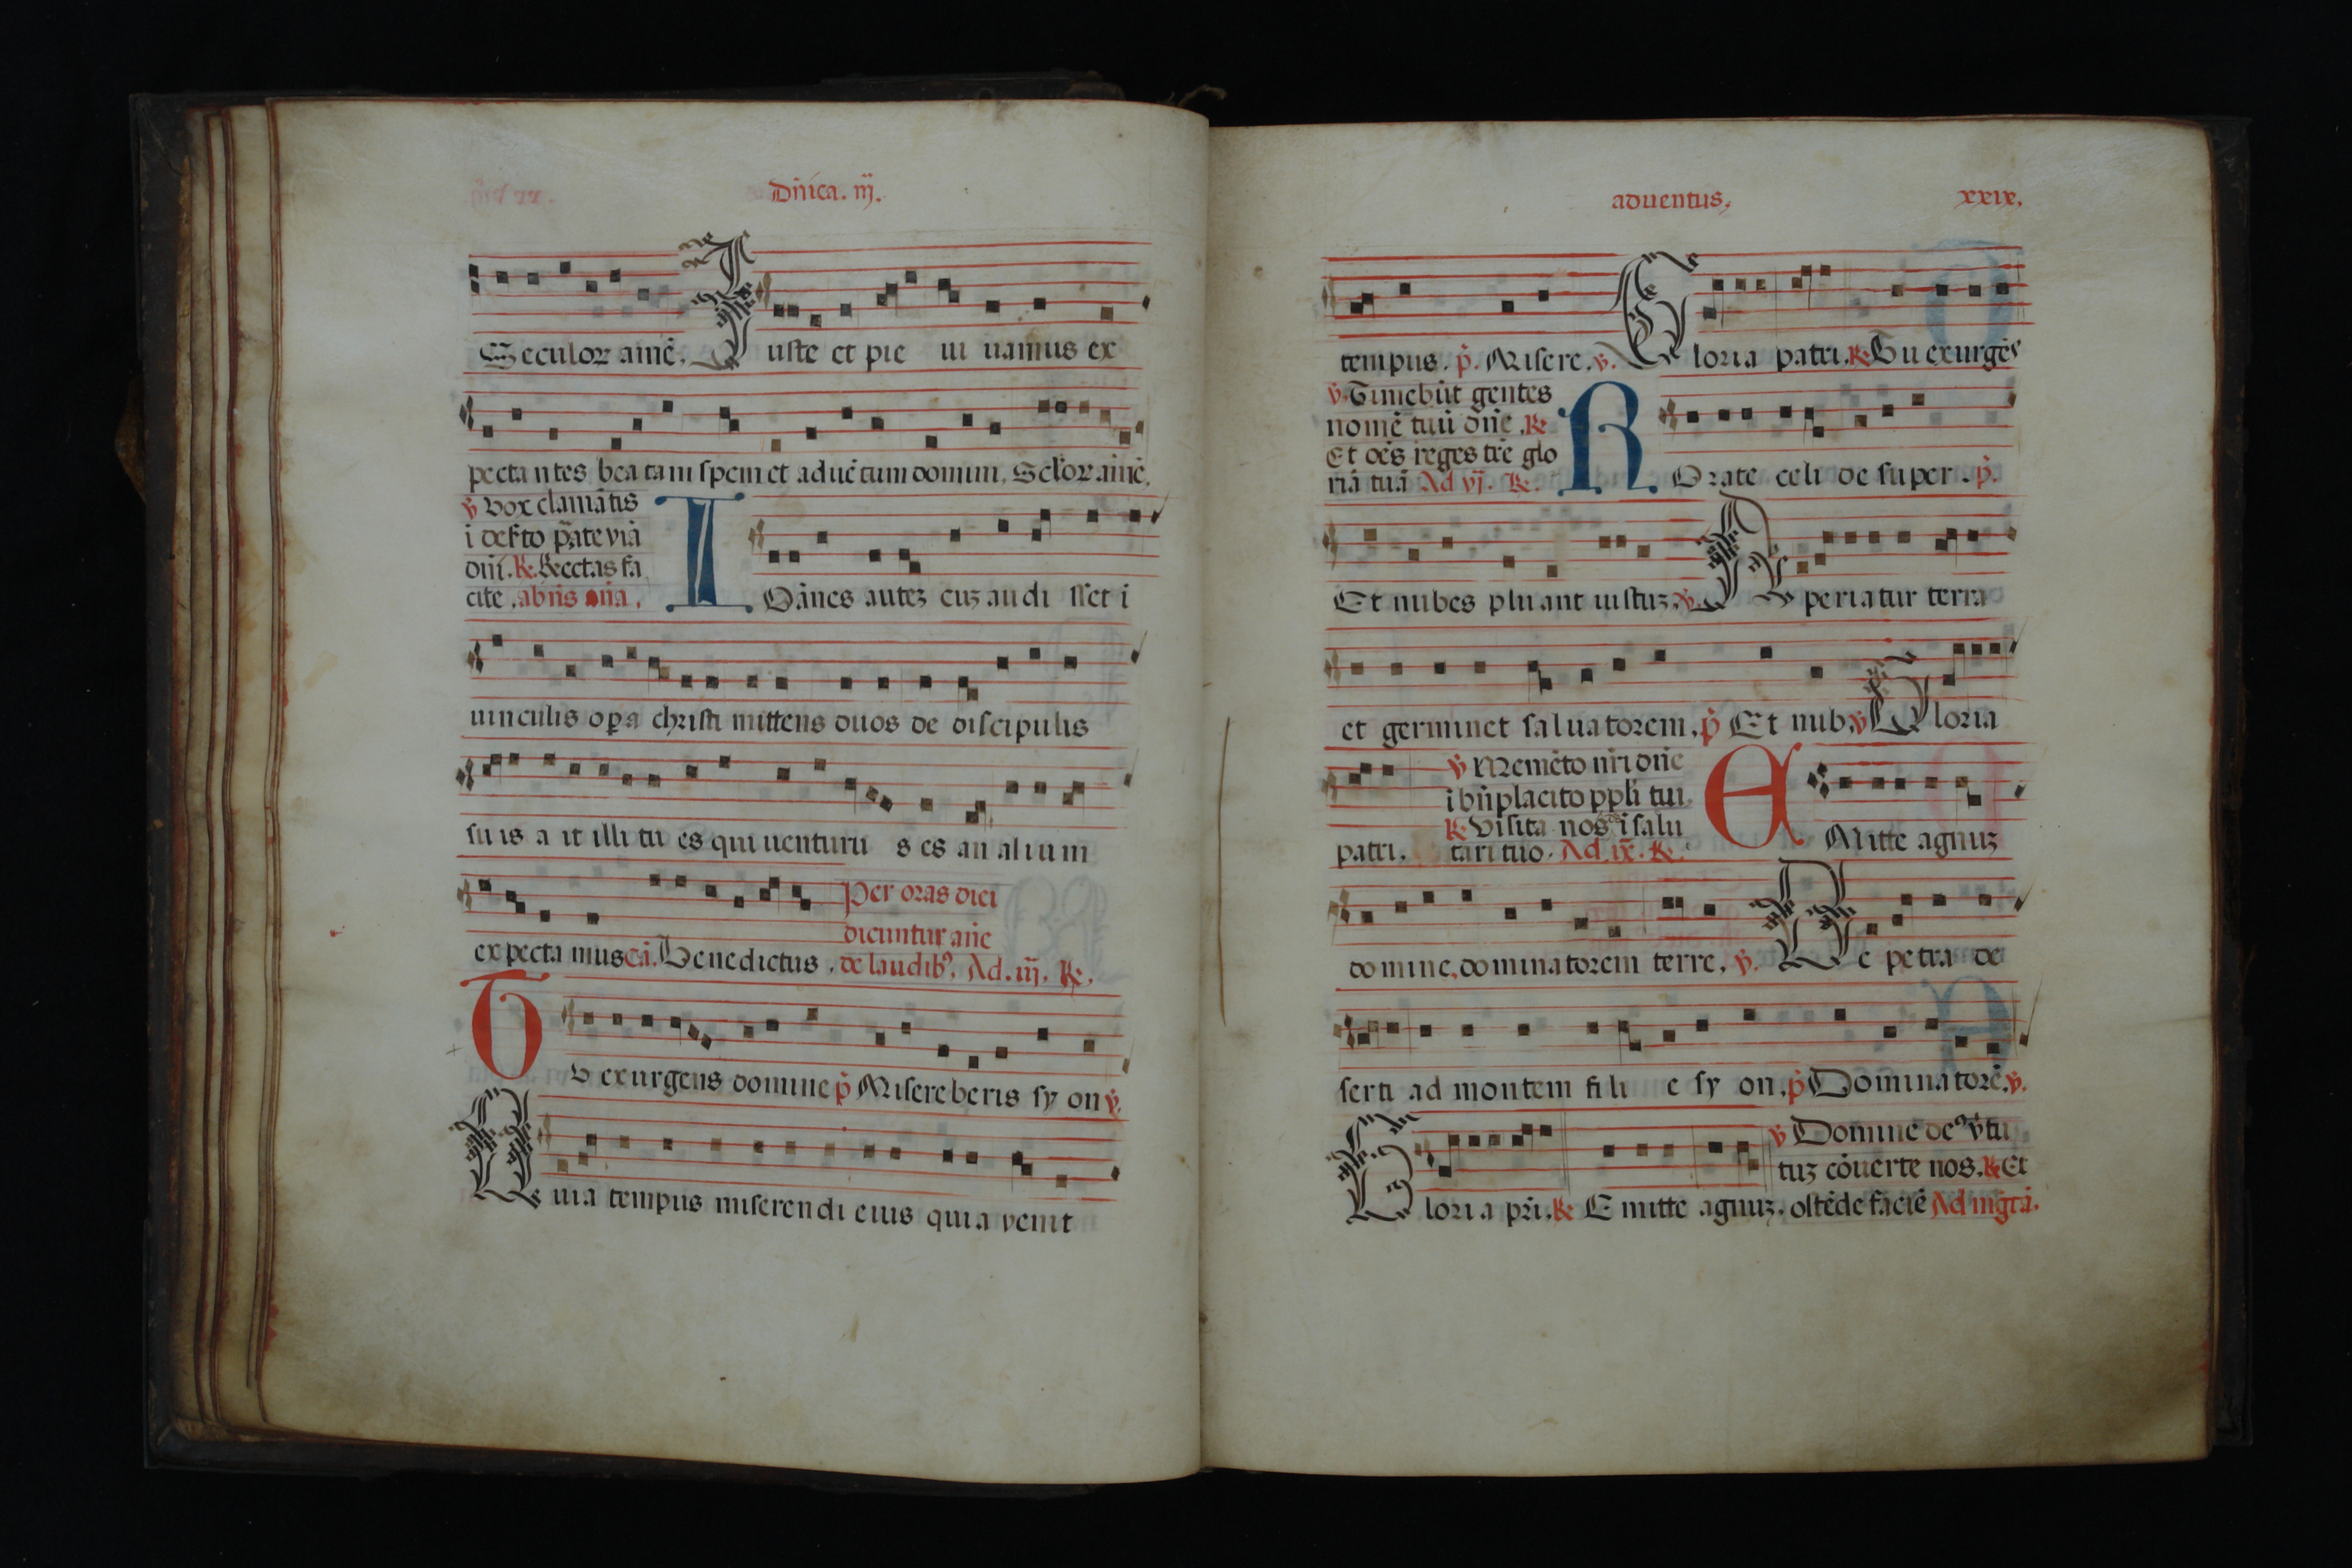 Dñica. iij.
Seculor amẽ. Iuste et pie ui uamus ex
pecta ntes bea tam spem et aduẽ tum domini. Sclor amẽ.
℣ Vox clamãtis
i deserto pate viã
dñi. ℟. Rectas fa
cite. ab̃ñs
IOãnes autez cuz au di sset i
uinculis opa christi mittens duos de discipulis
su is a it illi tu es qui uenturu s es an alium
Per oras diei
dicuntur añe
expecta mus cã. Benedictus. de laudib9. Ad. iij. ℟.
TV exurgens domine p̃ Misereberis sy on ℣.
Quia tempus miserendi eius quia venit
aduentus. xxix.
tempus. p̃. Misere. ℣. Gloria patri. ℟. Tu exurgẽs
℣. Timebũt gentes
nomẽ tuũ dñe. ℟.
Et oẽs reges trẽ glo
riã tuã Ad vj. ℟.
ROrate celi de super. p̃.
Et nubes plu ant iustuz. ℣. Aperiatur terra
et germinet saluatorem. p̃ Et nub. ℣ Gloria
℣ Memẽto nr̃i dñe
i bñplacito ppli tui
℟ Visita nos i salu
patri. tari tuo. Ad. ix. ℟.
EMitte agnuz
domine, dominatorem terre. ℣. De petra de
serti ad montem fili e sy on. p̃ Dominatorẽ. ℣.
℣ Domine de9 v̓tu
tuz cõuerte nos. ℟ Et
Gloria pr̃i. ℟ E mitte agnuz. ostẽde faciẽ Ad mg̃tã.